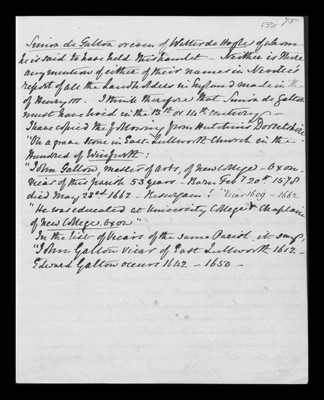 75
Simon de Galton or even of Walter de Hoyle of whom
he is said to have held this hamlet. Neither is there
any mention of either of their names in Needle's
report of all the Landholders in England made in the
of Henry III. I think therefore that Simon de Galton
must have lived in the 13th or 14th century.
I have copied the following from Hutchins Dorsetshire
"On a grave stone in East Lullworth Church in the
Hundred of Winfrith:
"John Galton, master of arts, of New College - Oxon.
Vicar of this parish 53 years - Born Feb 20th 1578
died May 23rd 1662 - Resurgam!" Vicar 1609 - 1662
"He was educated at University College & Chaplain
of New College Oxon."
In the list of Vicars of the same Parish it says,
"John Galton vicar of East Lullworth 1612 -
Edward Galton occurs 1642 - 1650 -